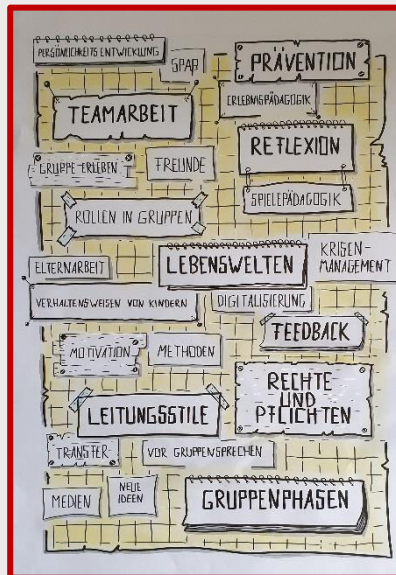 PERSÖNLICHKEITS ENTWICKLUNG
SPAP
PRÄVENTION
TEAMARBEIT
ERLEBNISPÄDAGOGIK
REFLEXION
GRUPPE ERLEBEN
FREUNDE
SPIELEPÄDAGOGIK
ROLLEN IN GRUPPEN
KRISEN-
MANAGEMENT
ELTERNARBEIT
LEBENSWELTEN
VERHALTENSWEISEN VON KINDERN
DIGITALISIERUNG
FEEDBACK
MOTIVATION
METHODEN
RECHTE
UND
PFLICHTEN
LEITUNGSSTILE
TRANSFER
VOR GRUPPEN SPRECHEN
MEDIEN
NEUE
IDEEN
GRUPPENPHASEN